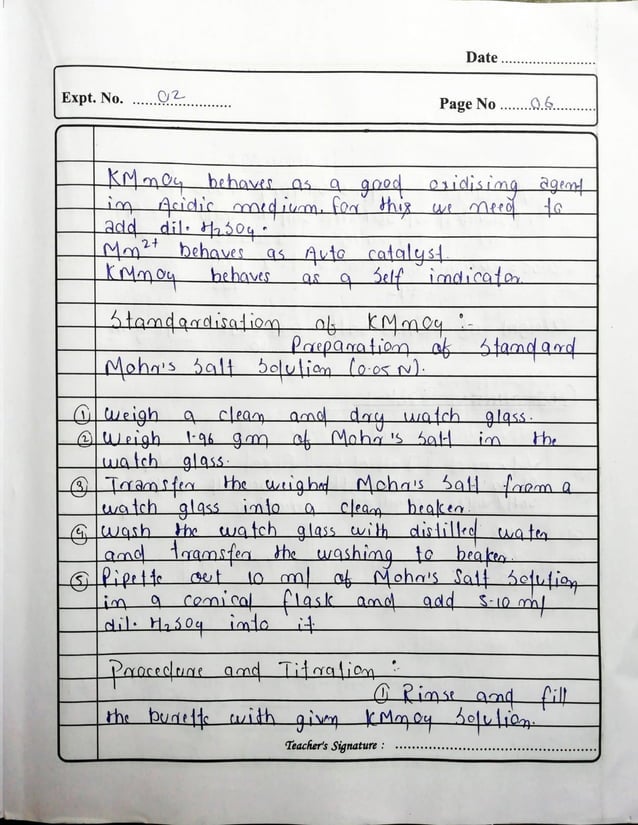 Date ........................
Expt. No. ......02.................
Page No .......06...........
KMnO4 behaves as a good oxidising agent
in Acidic medium. for this we need to
add dil. H2SO4.
Mn2+ behaves as Auto catalyst.
KMnO4 behaves as a self indicator.
Standardisation of KMnO4 :-
Preparation of Standard
Mohr's Salt Solution (0.05 N).
① Weigh a clean and dry watch glass.
② Weigh 1.96 gm of Mohr's Salt in the
watch glass.
③ Transfer the weighed Mohr's Salt from a
watch glass into a clean beaker.
④ Wash the watch glass with distilled water
and transfer the washing to beaker.
⑤ Pipette out 10 ml of Mohr's Salt Solution
in a conical flask and add 5-10 ml
dil. H2SO4 into it
Procedure and Titration :
① Rinse and fill
the burette with given KMnO4 Solution.
Teacher's Signature : ......................................................